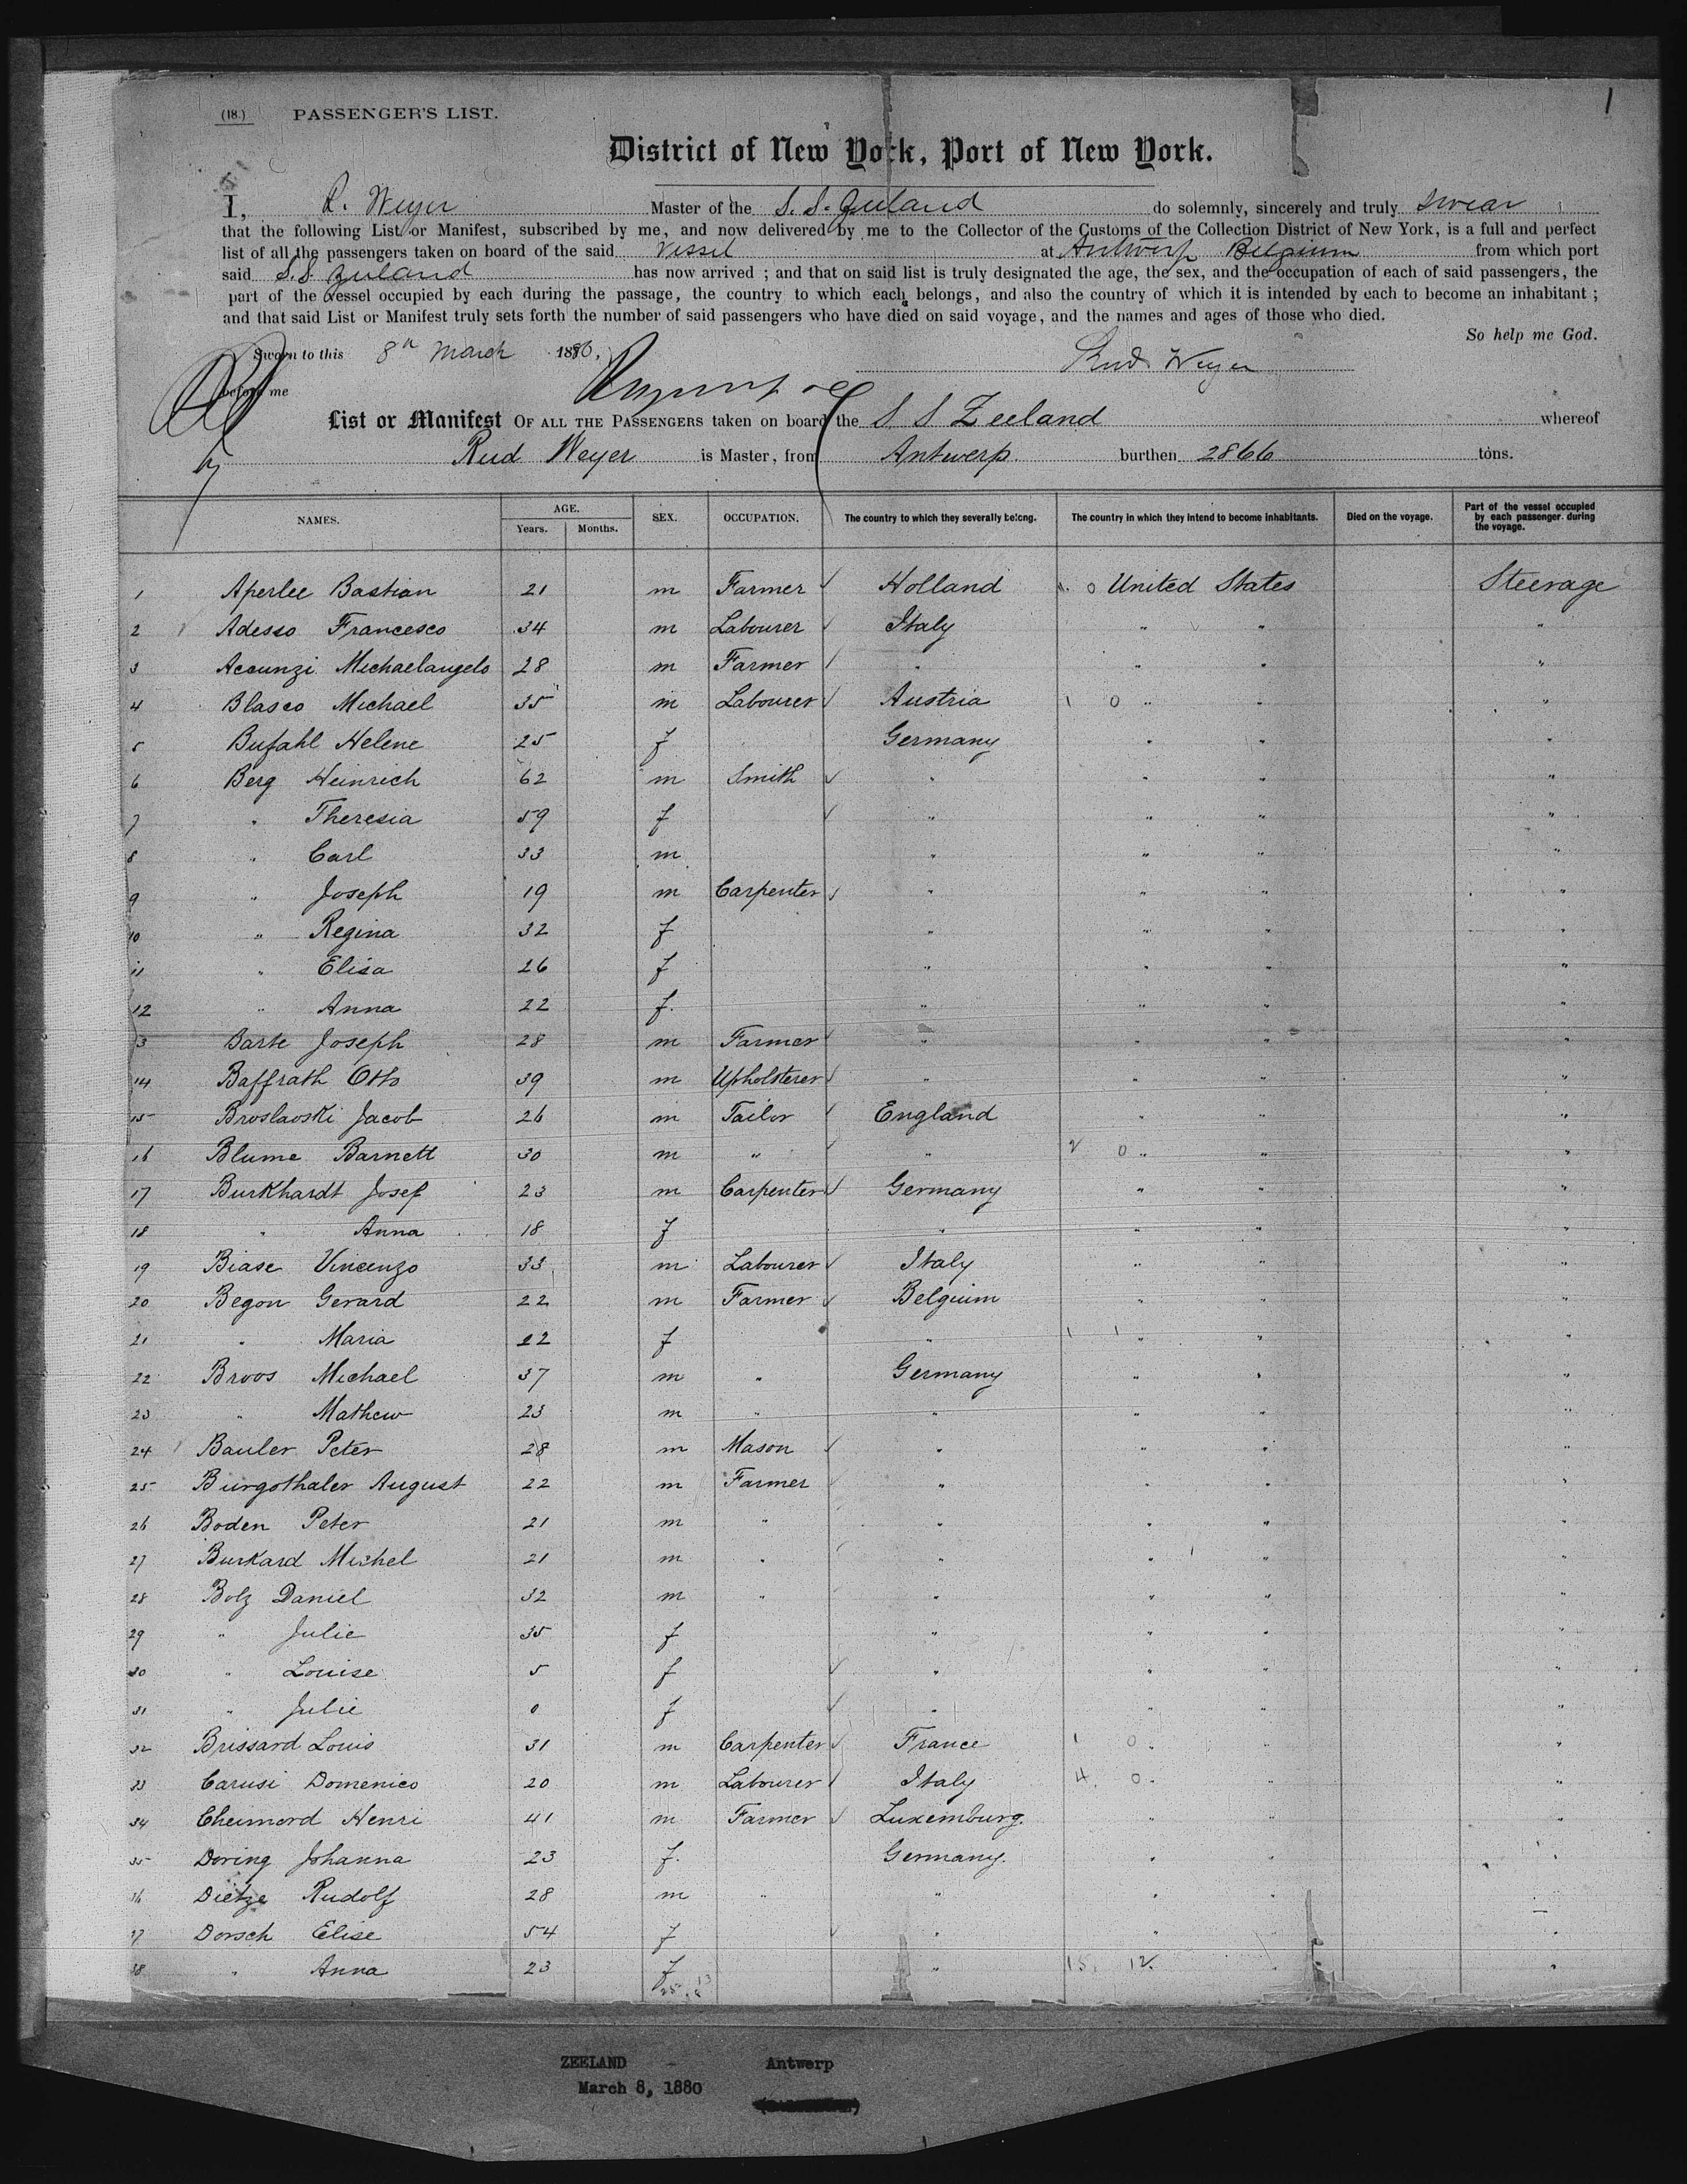 1
(18.) PASSENGER'S LIST.
District of New York, Port of New York.
I, R. Weyer Master of the S.S. Zeeland do solemnly, sincerely and truly swear
that the following List or Manifest, subscribed by me, and now delivered by me to the Collector of the Customs of the Collection District of New York, is a full and perfect
list of all the passengers taken on board of the said Vessel at Antwerp Belgium from which port
said S.S. Zeeland has now arrived ; and that on said list is truly designated the age, the sex, and the occupation of each of said passengers, the
part of the vessel occupied by each during the passage, the country to which each belongs, and also the country of which it is intended by each to become an inhabitant ;
and that said List or Manifest truly sets forth the number of said passengers who have died on said voyage, and the names and ages of those who died.
So help me God.
Sworn to this 8th March 1880, Rud Weyer
before me
List or Manifest OF ALL THE PASSENGERS taken on board the S S Zeeland whereof
Rud Weyer is Master, from Antwerp burthen 2866 tons.
NAMES. AGE. Years. Months. SEX. OCCUPATION. The country to which they severally belong. The country in which they intend to become inhabitants. Died on the voyage. Part of the vessel occupied by each passenger during the voyage.
1 Aperlee Bastian 21 m Farmer Holland 1. 0 United States Steerage
2 Adesso Francesco 34 m Labourer Italy " " "
3 Accunzi Michaelangelo 28 m Farmer " " " "
4 Blasco Michael 35 m Labourer Austria 1 0 " " "
5 Bufahl Helene 25 f Germany " " "
6 Berg Heinrich 62 m Smith " " " "
7 " Theresia 59 f " " " "
8 " Carl 33 m " " " "
9 " Joseph 19 m Carpenter " " " "
10 " Regina 32 f " " " "
11 " Elisa 26 f " " " "
12 " Anna 22 f. " " " "
13 Barte Joseph 28 m Farmer " " " "
14 Baffrath Otto 39 m Upholsterer " " " "
15 Broslavski Jacob 26 m Tailor England " " "
16 Blume Barnett 30 m " " 2 0 " " "
17 Burkhardt Josef 23 m Carpenter Germany " " "
18 " Anna 18 f " " " "
19 Biase Vincenzo 33 m Labourer Italy " " "
20 Begon Gerard 22 m Farmer Belgium " " "
21 " Maria 22 f " 1 1 " " "
22 Broos Michael 37 m " Germany " " "
23 " Mathew 23 m " " " " "
24 Bauler Peter 28 m Mason " " " "
25 Burgothaler August 22 m Farmer " " " "
26 Boden Peter 21 m " " " " "
27 Burkard Michel 21 m " " " " "
28 Bolz Daniel 32 m " " " " "
29 " Julie 35 f " " " "
30 " Louise 5 f " " " "
31 " Julie 0 f " " " "
32 Brissard Louis 31 m Carpenter France 1 0 " " "
33 Carusi Domenico 20 m Labourer Italy 4. 0 " " "
34 Cheimord Henri 41 m Farmer Luxemburg. " " "
35 Doring Johanna 23 f. Germany. " " "
36 Dietze Rudolf 28 m " " " "
37 Dorsch Elise 54 f " " "
38 " Anna 23 f " 15. 12. " "
ZEELAND - Antwerp
March 8, 1880